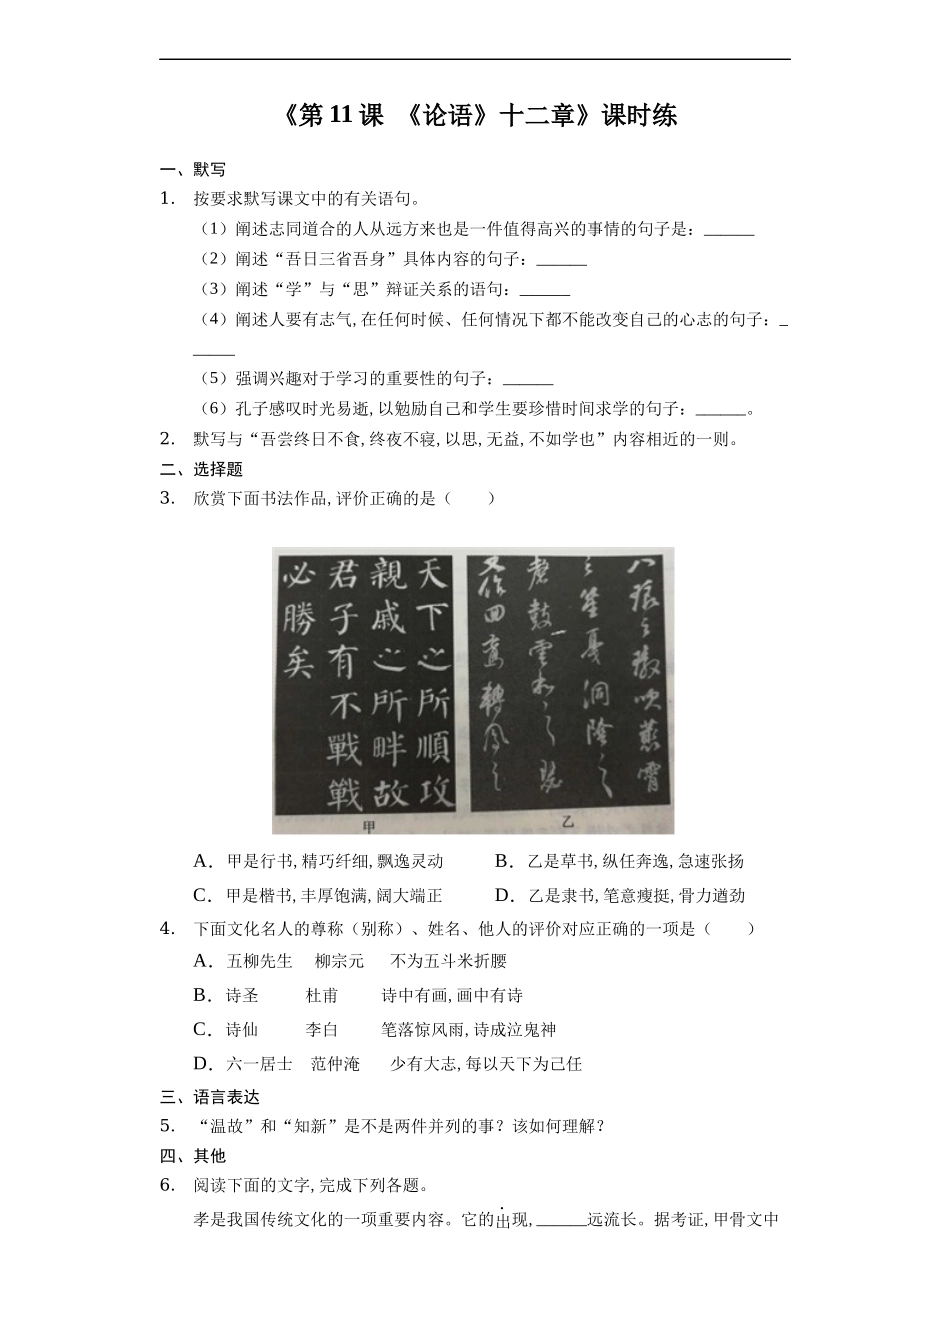 《第 11 课 《论语》十二章》课时练
一、默写
1. 按要求默写课文中的有关语句。
（1）阐述志同道合的人从远方来也是一件值得高兴的事情的句子是：______
（2）阐述“吾日三省吾身”具体内容的句子：______
（3）阐述“学”与“思”辩证关系的语句：______
（4）阐述人要有志气,在任何时候、任何情况下都不能改变自己的心志的句子：_
_____
（5）强调兴趣对于学习的重要性的句子：______
（6）孔子感叹时光易逝,以勉励自己和学生要珍惜时间求学的句子：______。
2. 默写与“吾尝终日不食,终夜不寝,以思,无益,不如学也”内容相近的一则。
二、选择题
3. 欣赏下面书法作品,评价正确的是（　　）
天下之所順攻
親戚之所畔故
君子有不戰戰
必勝矣
甲
乙
A．甲是行书,精巧纤细,飘逸灵动　　B．乙是草书,纵任奔逸,急速张扬
C．甲是楷书,丰厚饱满,阔大端正　　D．乙是隶书,笔意瘦挺,骨力遒劲
4. 下面文化名人的尊称（别称）、姓名、他人的评价对应正确的一项是（　　）
A．五柳先生　柳宗元　不为五斗米折腰
B．诗圣　杜甫　诗中有画,画中有诗
C．诗仙　李白　笔落惊风雨,诗成泣鬼神
D．六一居士　范仲淹　少有大志,每以天下为己任
三、语言表达
5. “温故”和“知新”是不是两件并列的事？该如何理解？
四、其他
6. 阅读下面的文字,完成下列各题。
孝是我国传统文化的一项重要内容。它的出现,______远流长。据考证,甲骨文中